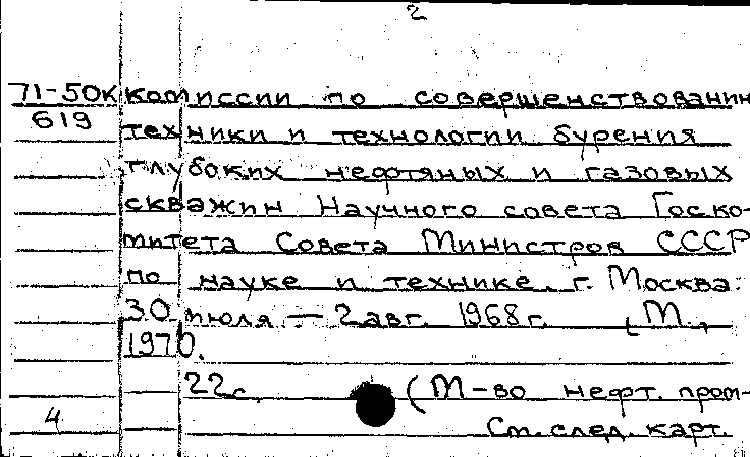 2
71-50к комиссии по совершенствовании
619
техники и технологии бурения
глубоких нефтяных и газовых
скважин Научного совета Госко-
митета Совета Министров СССР
по науке и технике. г. Москва.
30 июля — 2 авг. 1968 г. [М.,
1970.
22с. (М-во нефт. пром-
4
См. след. карт.